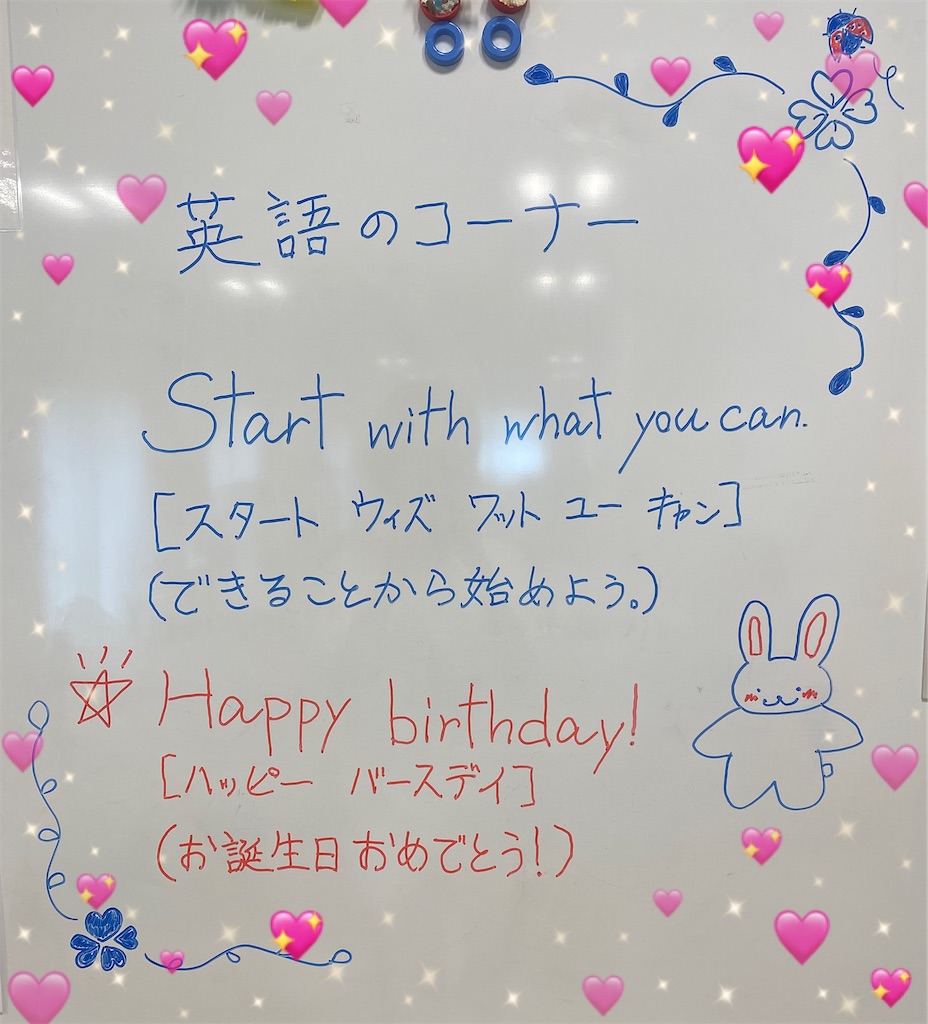 英語のコーナー
Start with what you can.
[スタート ウィズ ワット ユー キャン]
(できることから始めよう。)
Happy birthday!
[ハッピー バースデイ]
(お誕生日おめでとう!)